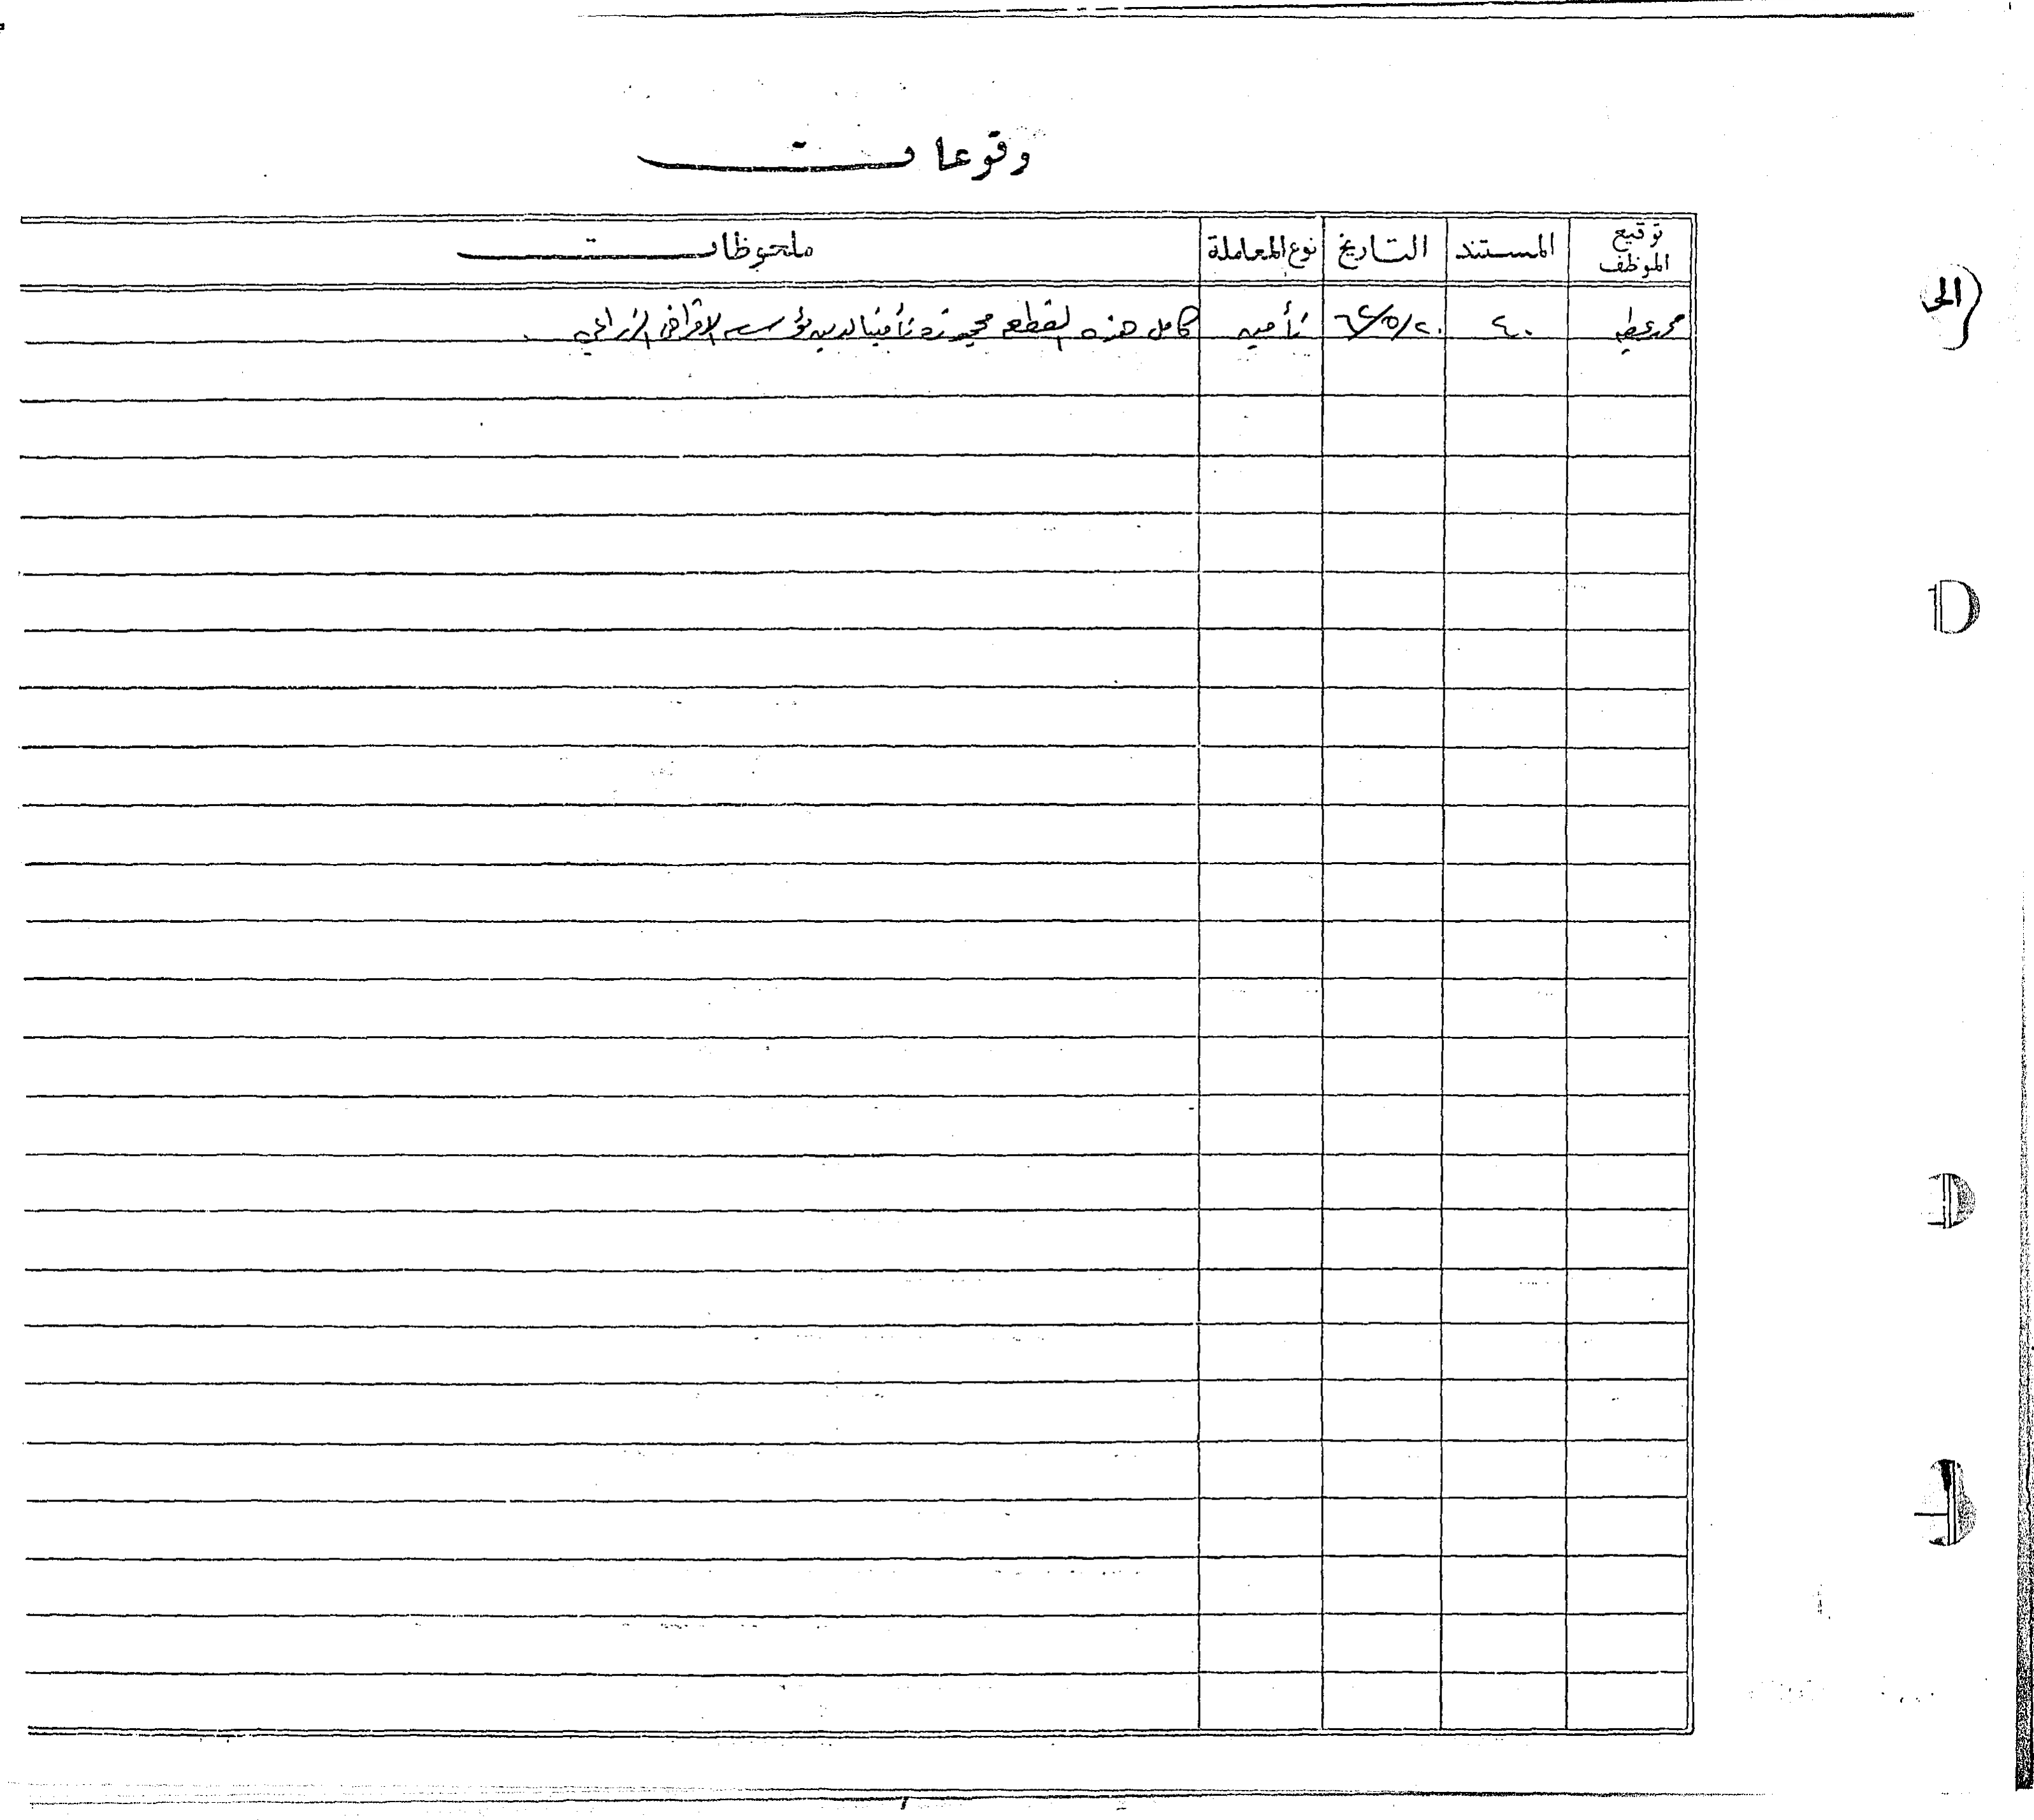 وقوعات
توقيع الموظف | المستند | التاريخ | نوع المعاملة | ملحوظات
٤٠ | ٦٤/٥/٢٠ | تأمين | كامل هذه القطع محجوزة تأمينا لدين مؤسسة الاقراض الزراعي